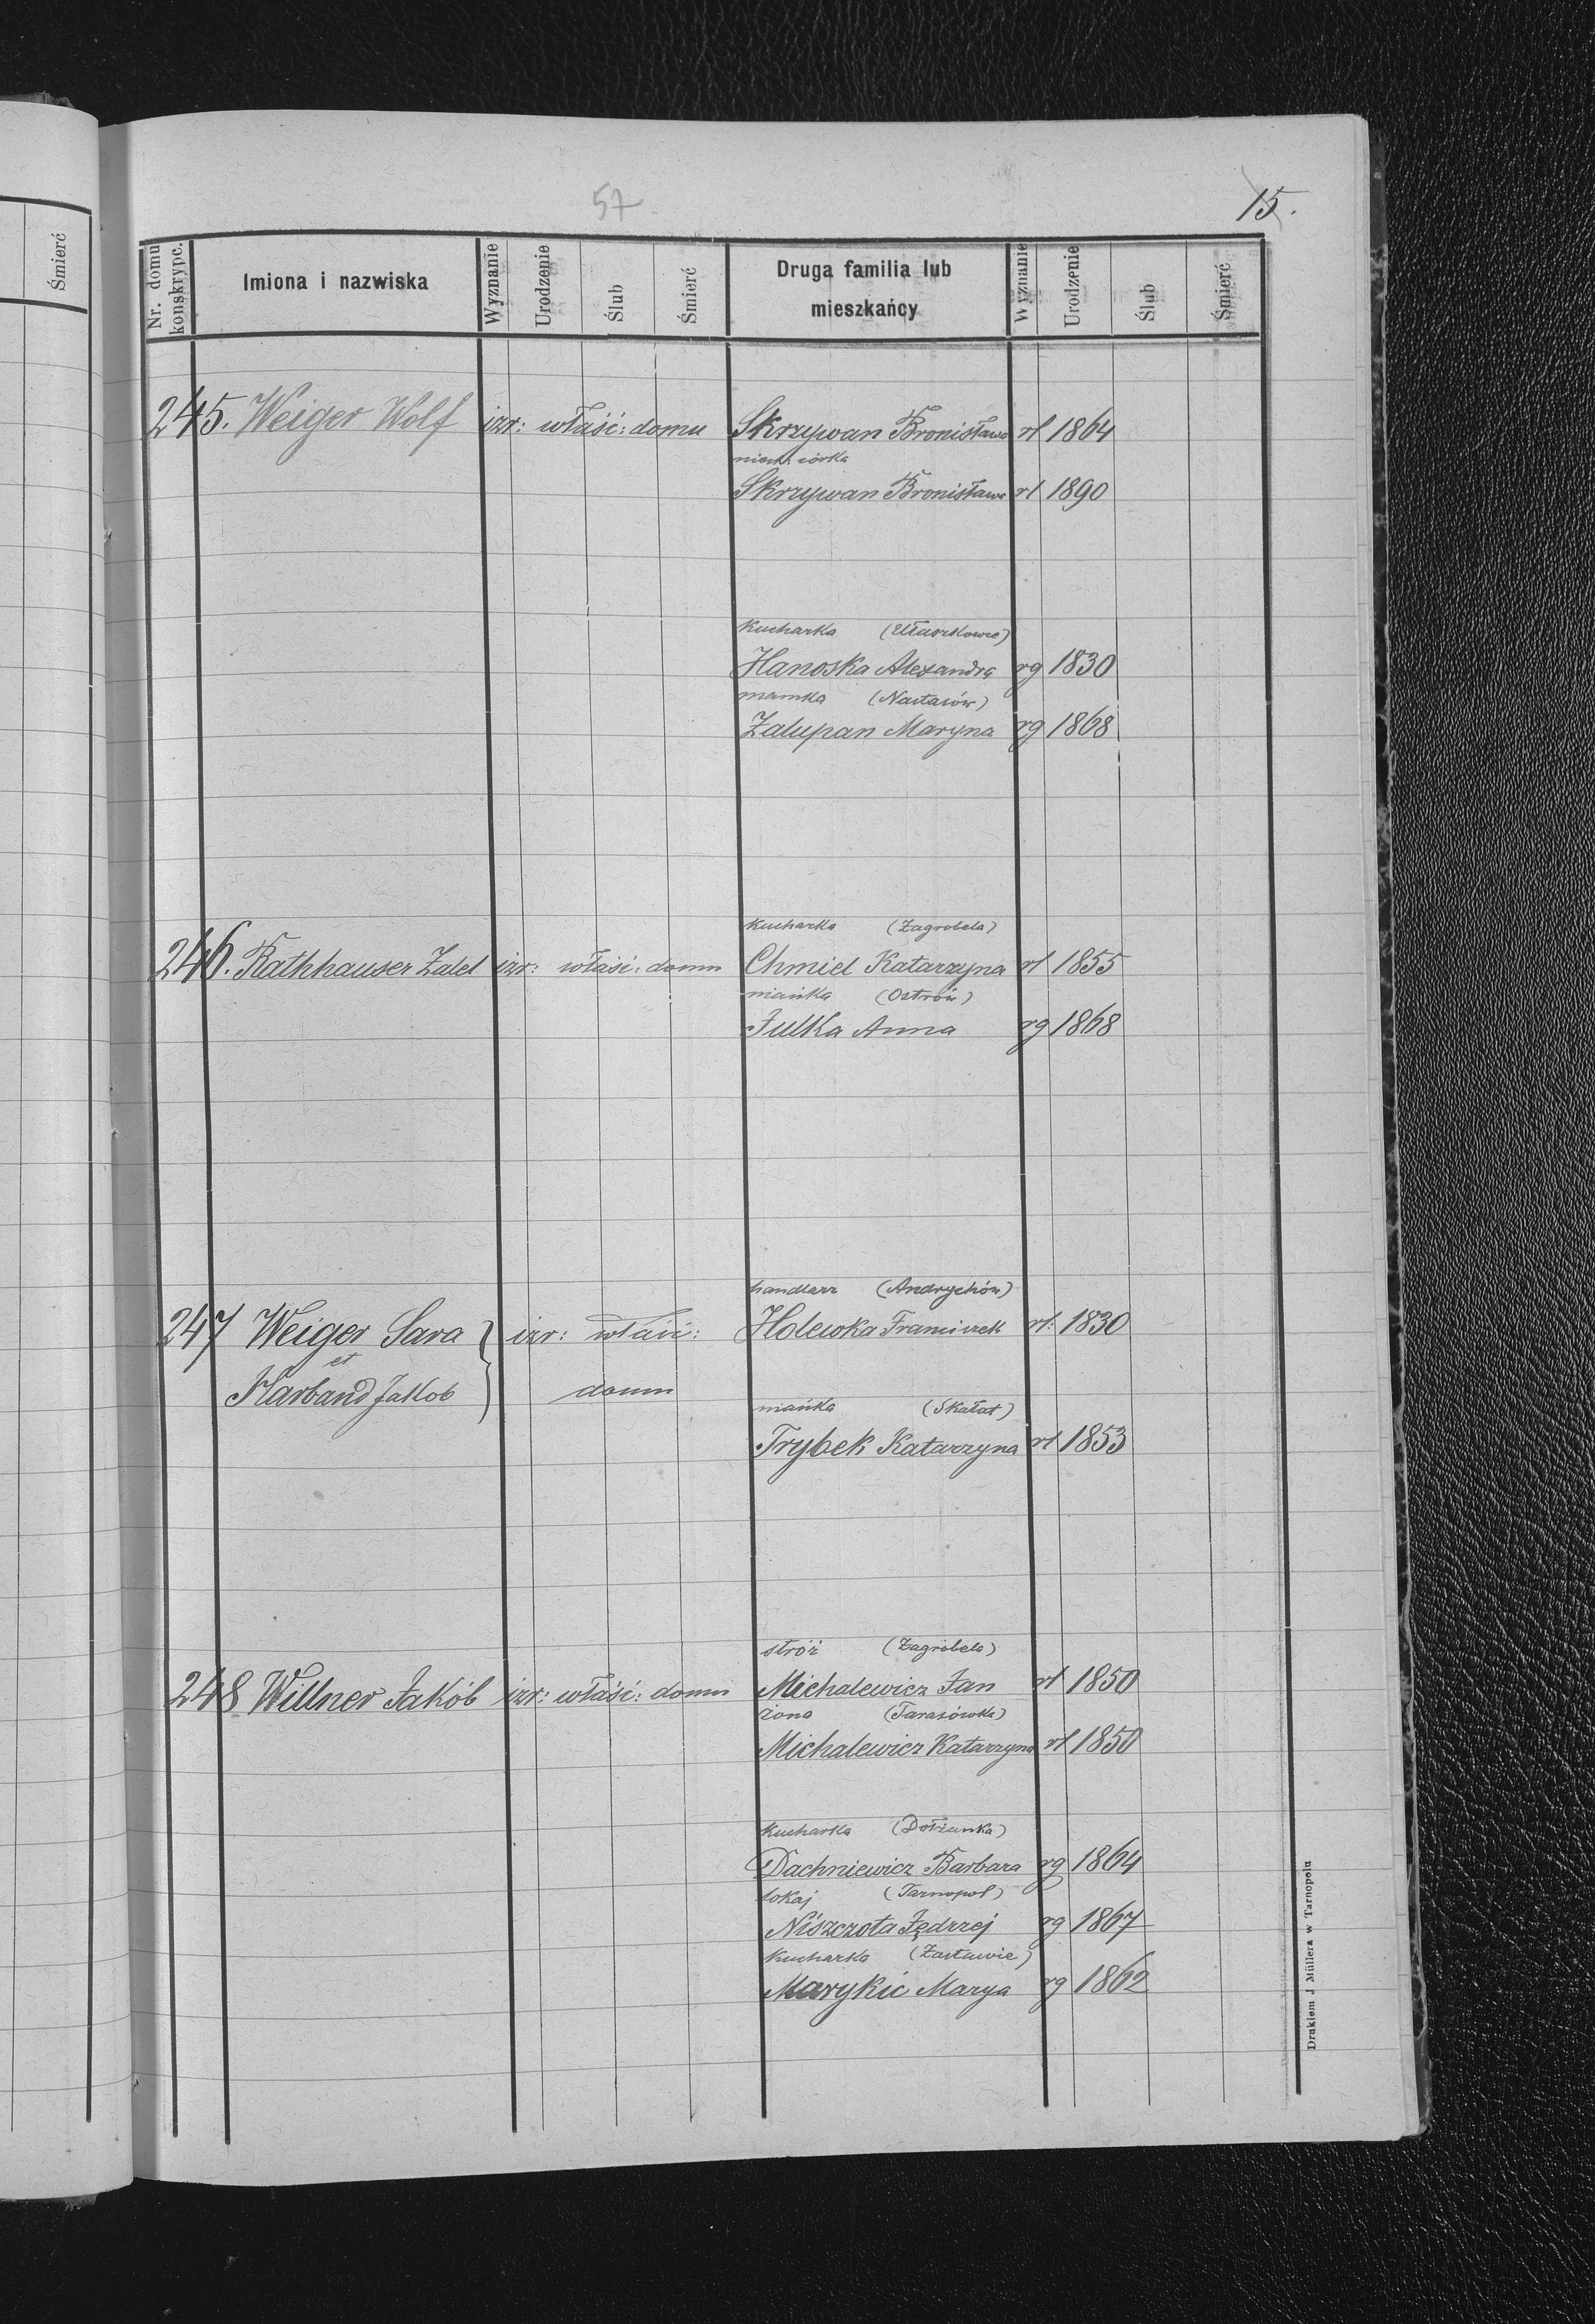 Śmierć
57
15.
Nr. domu konskrypc.
Imiona i nazwiska
Wyznanie
Urodzenie
Ślub
Śmierć
Druga familia lub mieszkańcy
Wyznanie
Urodzenie
Ślub
Śmierć
245. Weiger Wolf izr: właść: domu Skrzywan Bronisława rł 1864
córka
Skrzywan Bronisława rł 1890
Kucharka (Ułaszkowce)
Hanoska Alexandra rg 1830
mamka (Nastasów)
Zalupan Maryna rg 1868
Kucharka (Zagrobela)
246. Rathhauser Zalel izr: właść: domu Chmiel Katarzyna rł 1855
niańka (Ostrów)
Julka Anna rg 1868
handlarz (Andrychów)
247 Weiger Sara izr: właść: Holewka Franciszek rł: 1830
et
Harband Jakob domu
niańka (Skałat)
Trybek Katarzyna rł 1853
stróż (Zagrobela)
248 Willner Jakób izr: właść: domu Michalewicz Jan rł 1850
żona (Tarasówka)
Michalewicz Katarzyna rł 1850
Kucharka (Dołżanka)
Dachniewicz Barbara rg 1864
lokaj (Tarnopol)
Niszczota Jędrzej rg 1867
Kucharka (Zastawie)
Marykic Marya rg 1862
Drukiem J Müllera w Tarnopolu